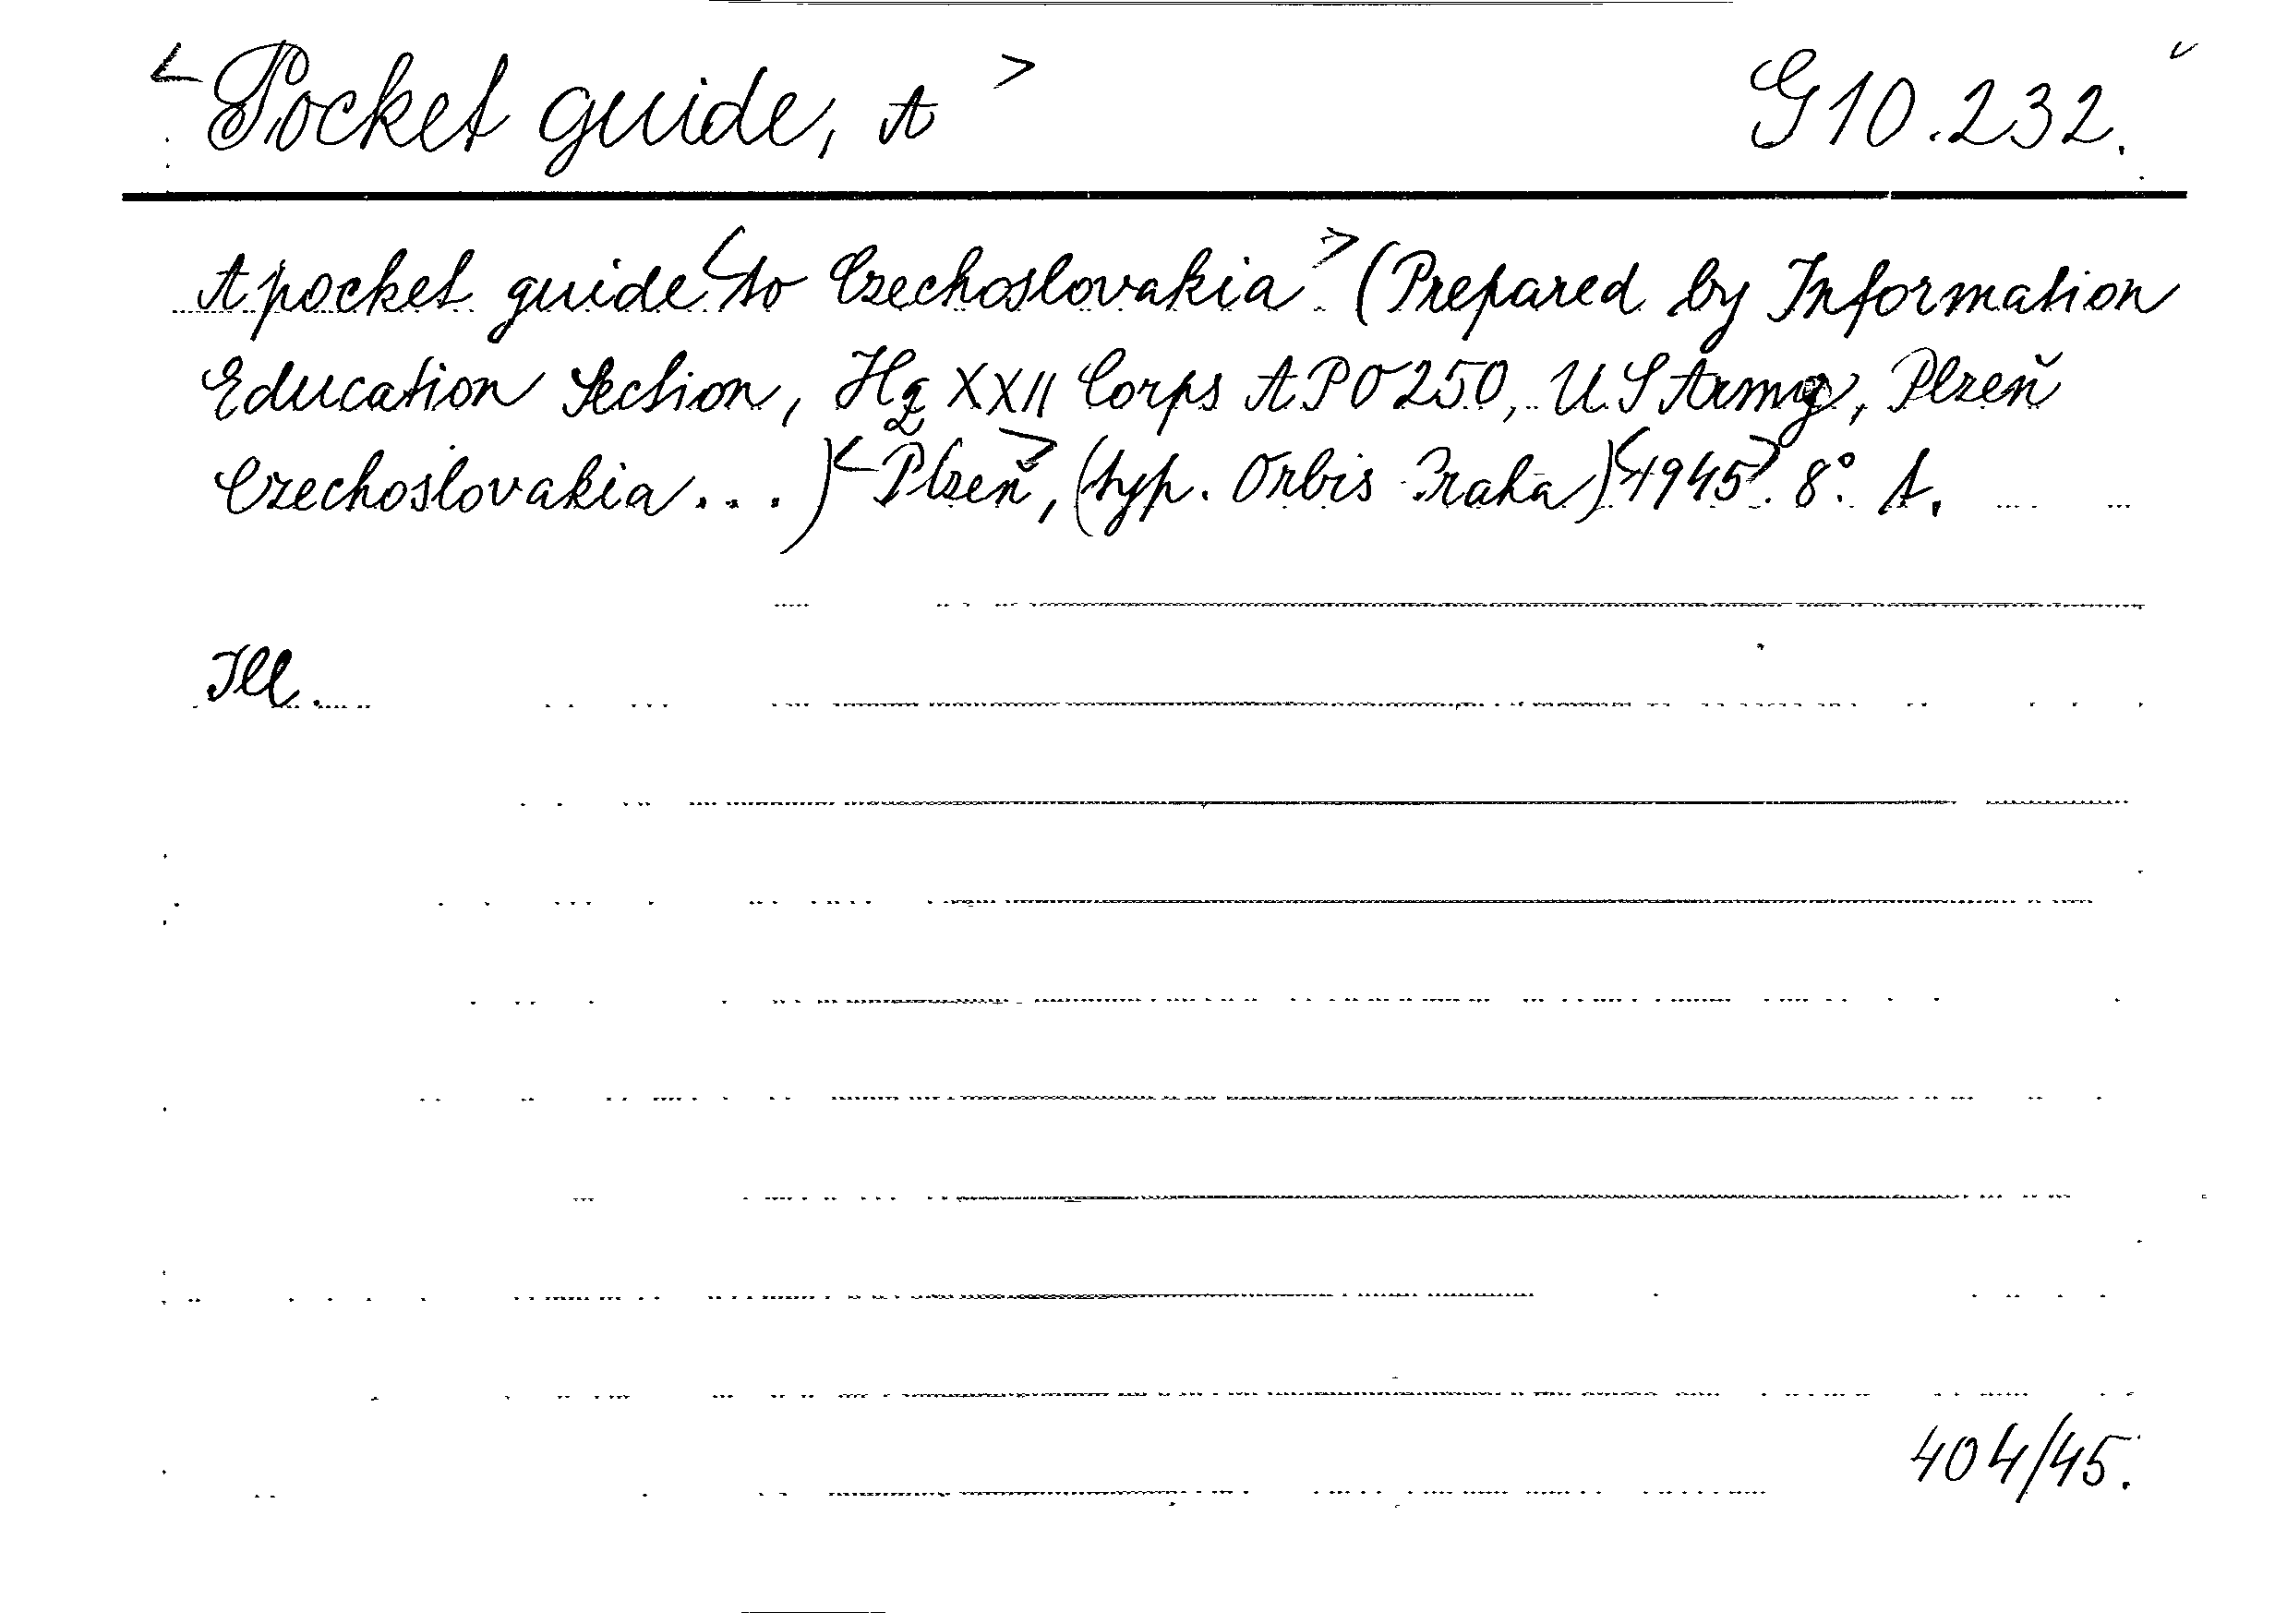 <Pocket guide, A> G10.232.
A pocket guide <to Czechoslovakia>. (Prepared by Information
Education Section, Hq XXII Corps APO 250, US Army, Plzeň
Czechoslovakia...) <Plzeň>, (typ. Orbis Praha) <1945>. 8°. A.
Ill.
404/45.